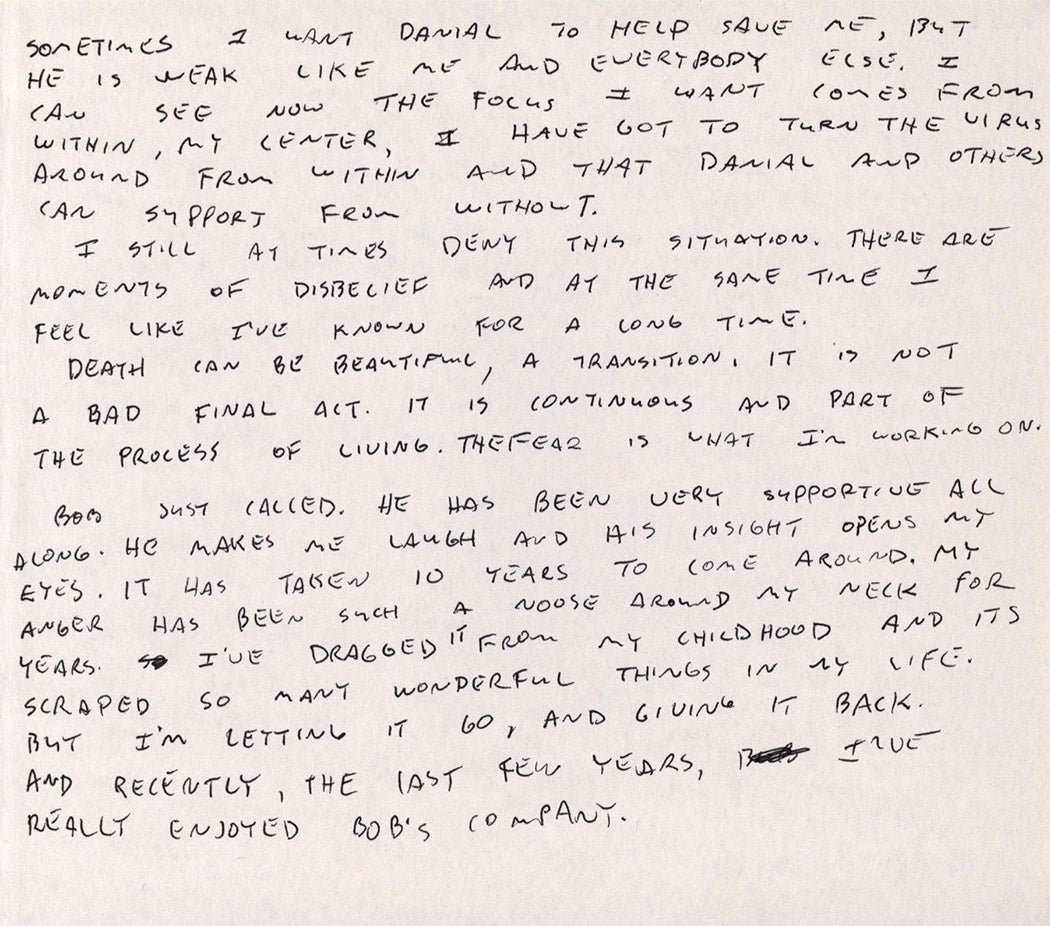 SOMETIMES I WANT DANIAL TO HELP SAVE ME, BUT
HE IS WEAK LIKE ME AND EVERYBODY ELSE. I
CAN SEE NOW THE FOCUS I WANT COMES FROM
WITHIN, MY CENTER, I HAVE GOT TO TURN THE VIRUS
AROUND FROM WITHIN AND THAT DANIAL AND OTHERS
CAN SUPPORT FROM WITHOUT.
I STILL AT TIMES DENY THIS SITUATION. THERE ARE
MOMENTS OF DISBELIEF AND AT THE SAME TIME I
FEEL LIKE I'VE KNOWN FOR A LONG TIME.
DEATH CAN BE BEAUTIFUL, A TRANSITION. IT IS NOT
A BAD FINAL ACT. IT IS CONTINUOUS AND PART OF
THE PROCESS OF LIVING. THE FEAR IS WHAT I'M WORKING ON.
BOB JUST CALLED. HE HAS BEEN VERY SUPPORTIVE ALL
ALONG. HE MAKES ME LAUGH AND HIS INSIGHT OPENS MY
EYES. IT HAS TAKEN 10 YEARS TO COME AROUND. MY
ANGER HAS BEEN SUCH A NOOSE AROUND MY NECK FOR
YEARS. I'VE DRAGGED IT FROM MY CHILDHOOD AND ITS
SCRAPED SO MANY WONDERFUL THINGS IN MY LIFE.
BUT I'M LETTING IT GO, AND GIVING IT BACK.
AND RECENTLY, THE LAST FEW YEARS, I'VE
REALLY ENJOYED BOB'S COMPANY.